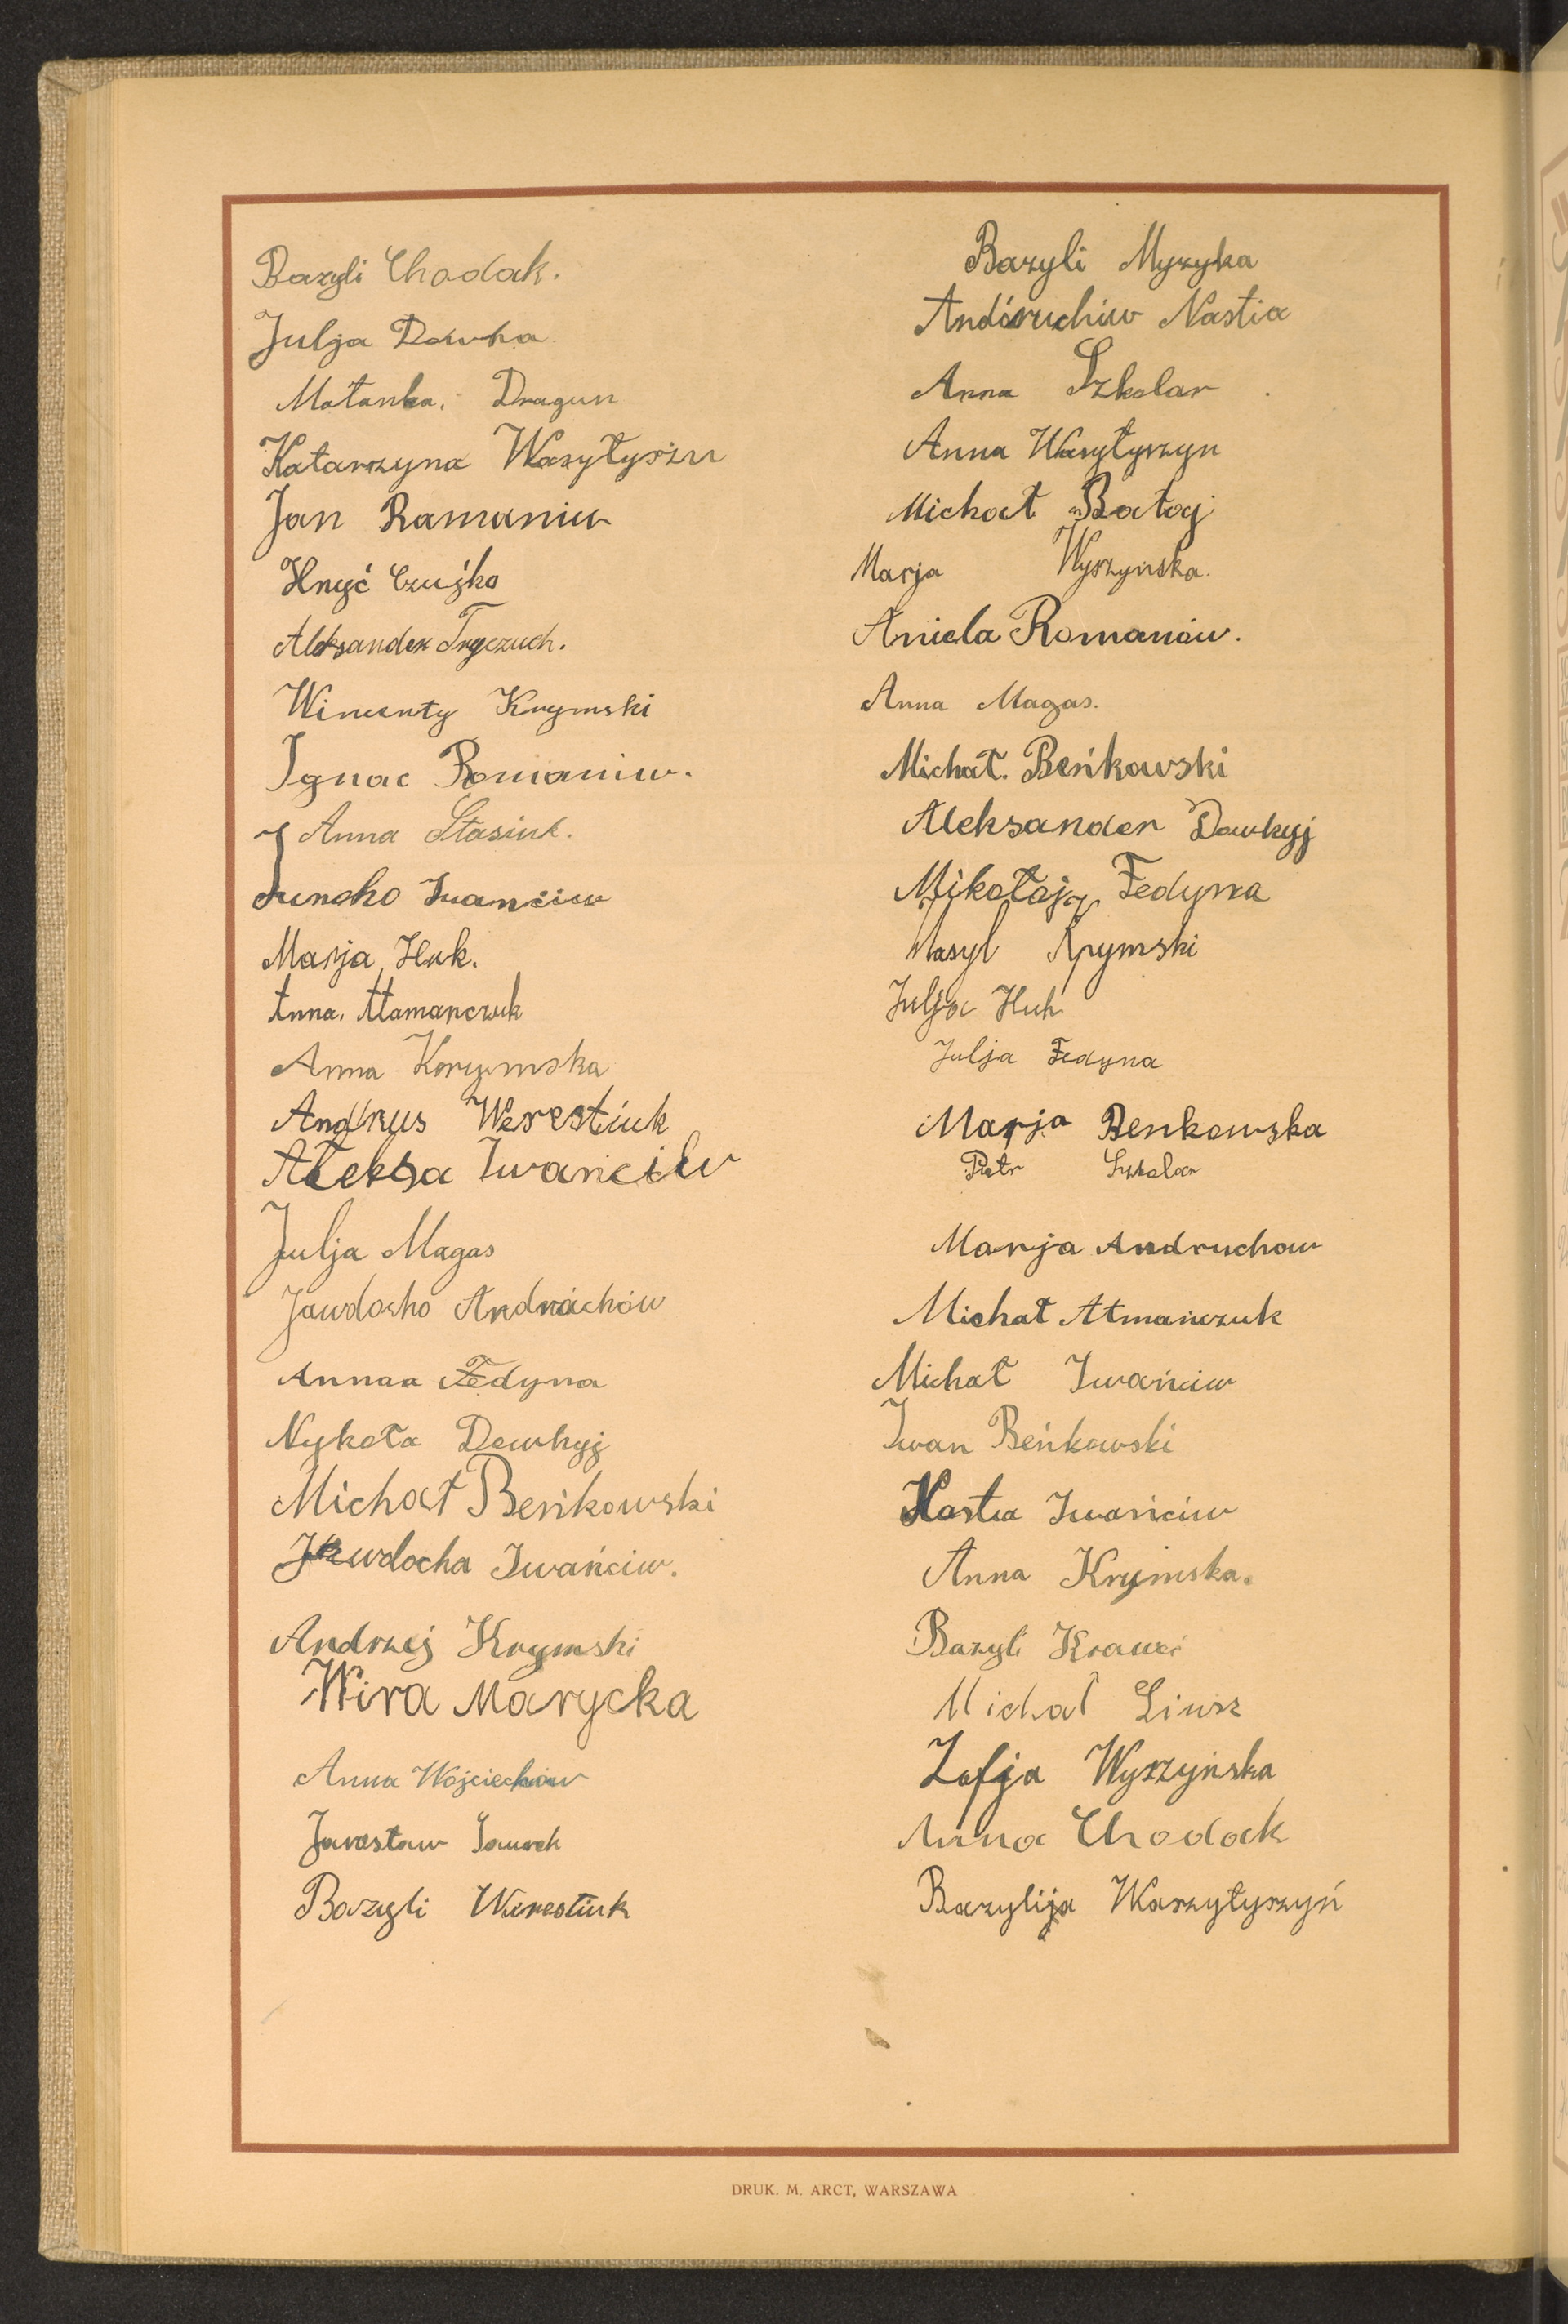 Bazyli Chodak.
Julja Dowha
Małanka. Dragun
Katarzyna Wasyłyszn
Jan Ramaniw
Hnyć Czujko
Aleksander Tryczuch.
Wincenty Krymski
Ignac Romaniw.
Anna Stasiuk.
Juncho Iwanciw
Marja Huk.
Anna. Atamanczuk
Anna Korymska
Andrus Werestiuk
Ałeksa Iwanciw
Julja Magas
Jawdocho Andrichów
Annaa Fedyna
Nykoła Dowhyj
Michał Beńkowski
Jewdocha Iwańciw.
Andrzej Krymski
Wira Marycka
Anna Wojciechów
Jarosław
Bazyli Werestiuk
Bazyli Myzyka
Andruchiw Nastia
Anna Szkolar
Anna Wasyłyszyn
Michał Batoj
Marja Wyszyńska.
Aniela Romanów.
Anna Magas.
Michał. Beńkowski
Aleksander Dowhyj
Mikołaj Fedyna
Wasyl Krymski
Julja Huk
Julja Fedyna
Marja Benkowska
Piotr Szkolar
Marja Andruchow
Michał Atmańczuk
Michał Iwańciw
Iwan Beńkowski
Nastia Iwańciw
Anna Krymska.
Bazyli Kraweć
Michał
Zofja Wyszyńska
Anna Chodack
Bazylija Waszyłyszyń
DRUK. M. ARCT, WARSZAWA